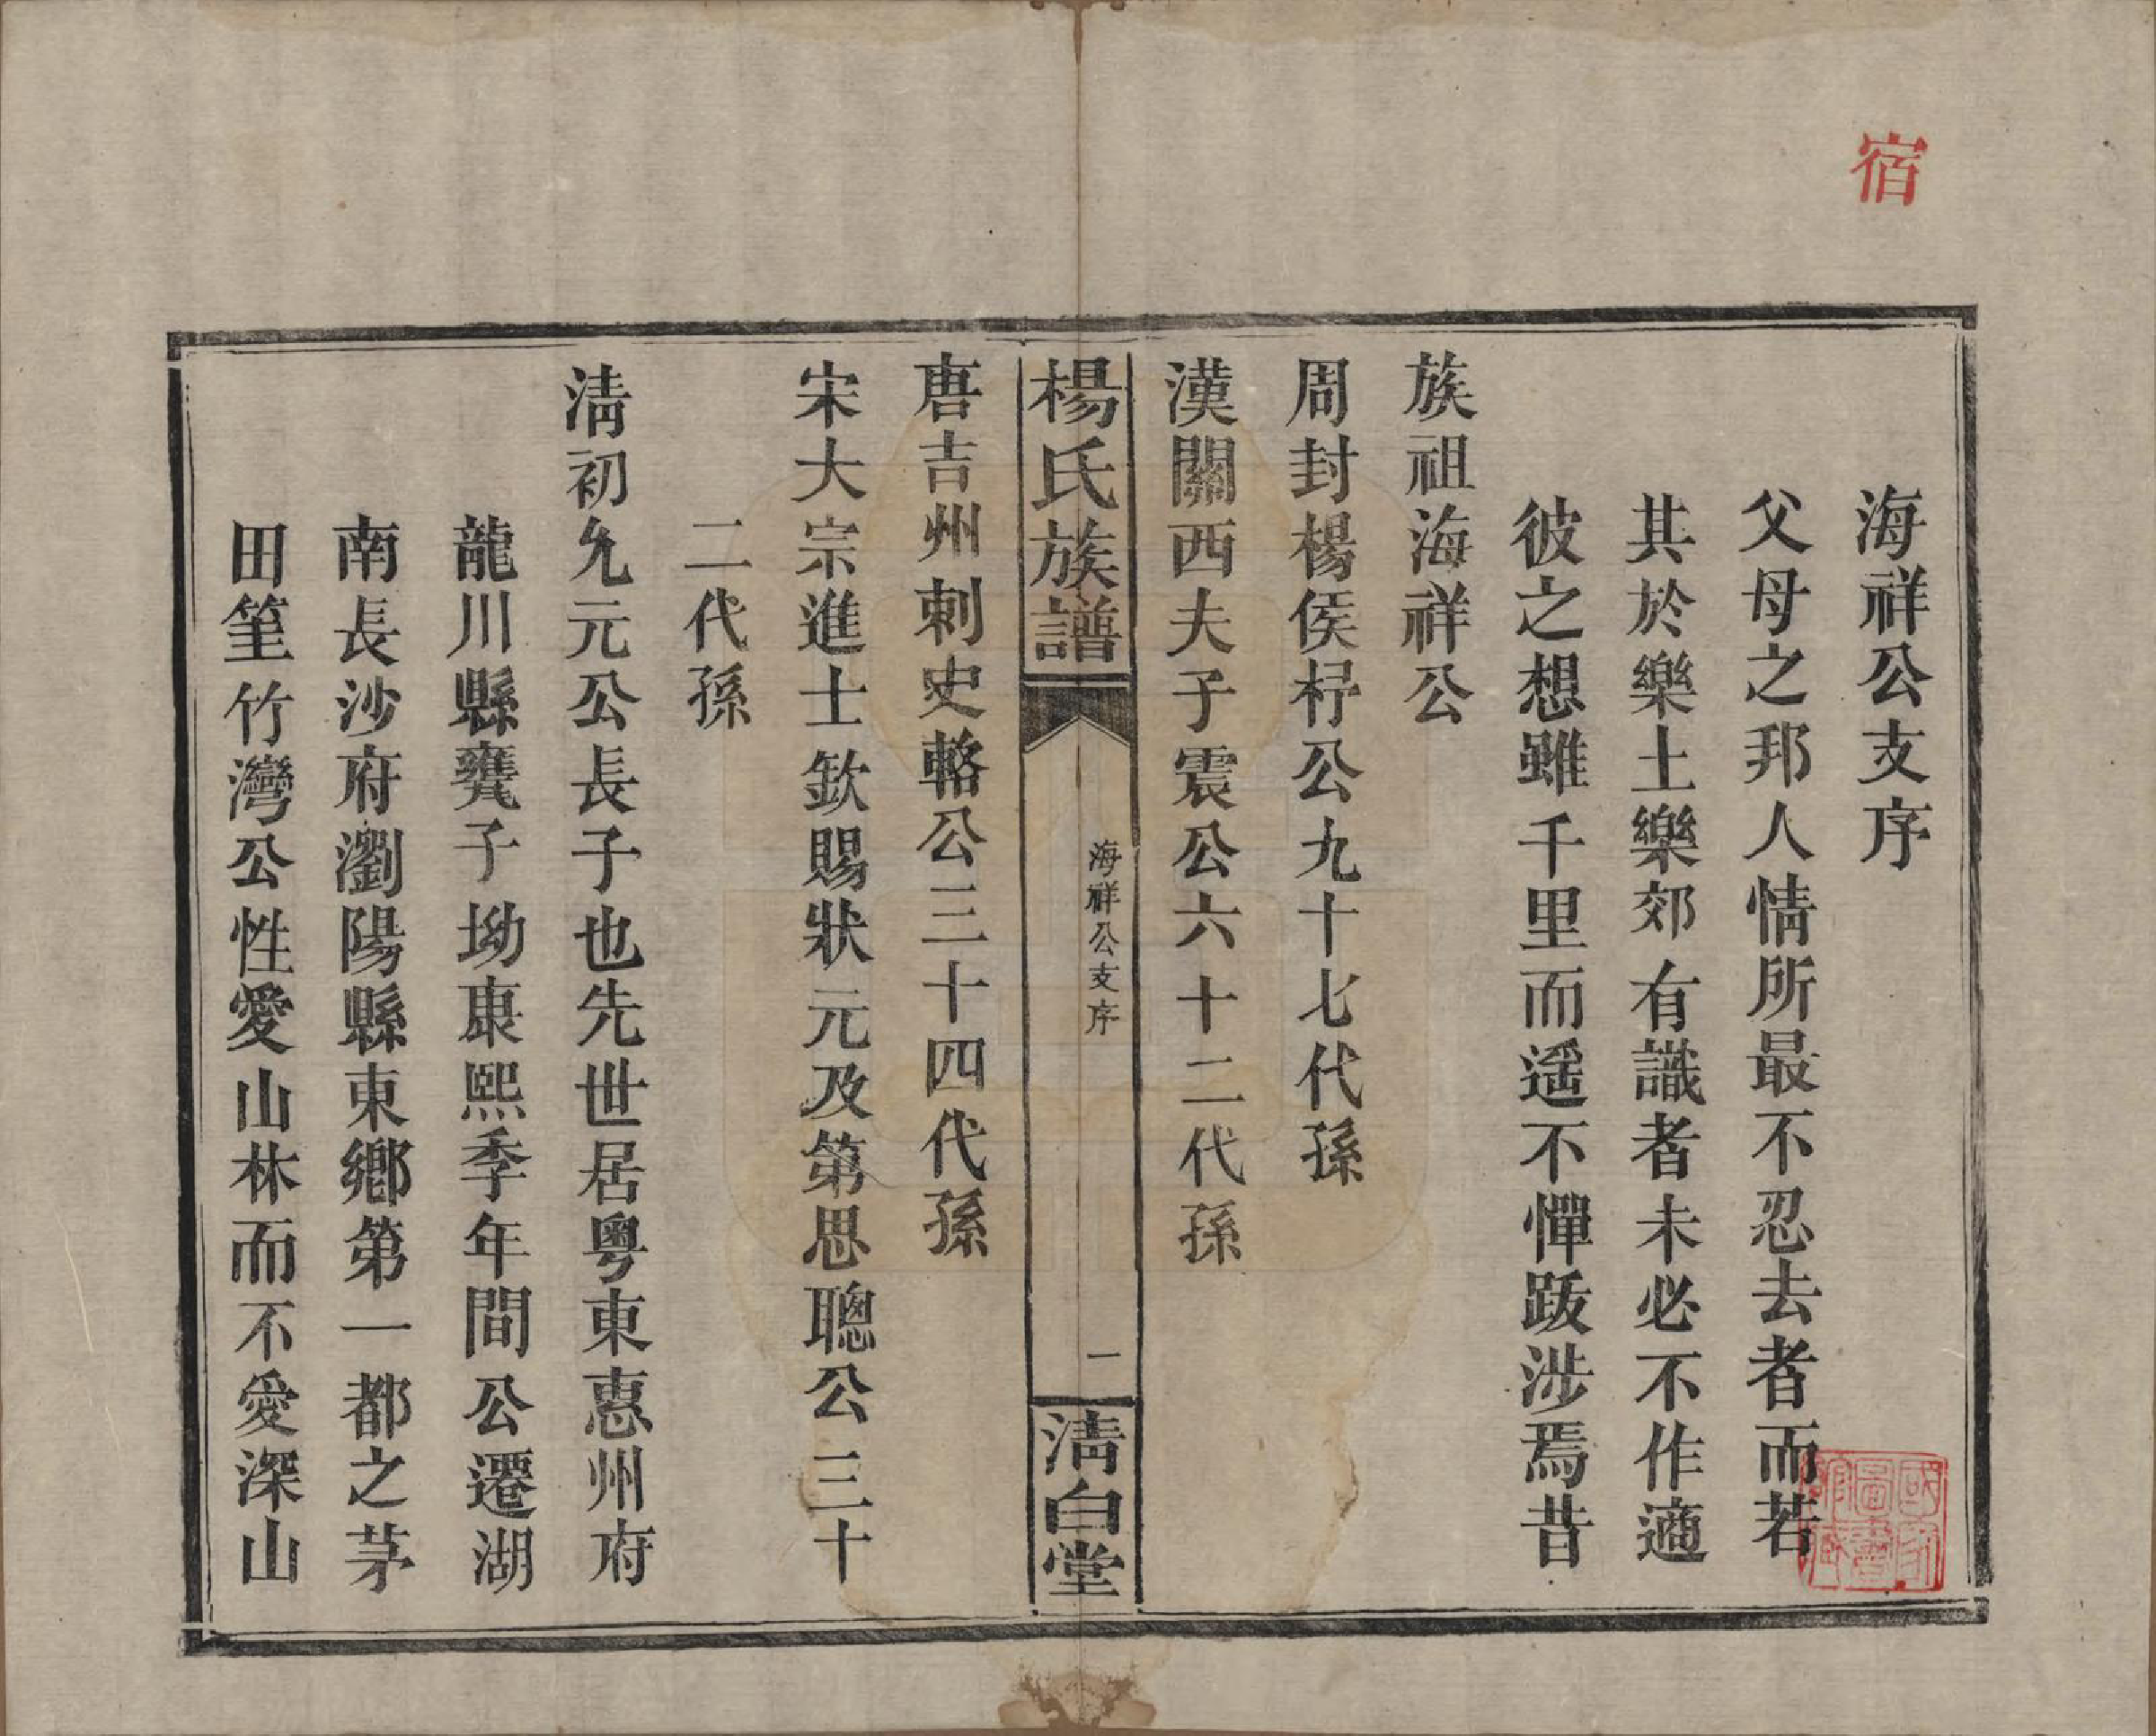 宿
海祥公支序
父母之邦人情所最不忍去者而若
其於樂土樂郊有識者未必不作適
彼之想雖千里而遥不憚跋涉焉昔
族祖海祥公
周封楊侯杼公九十七代孫
漢關西夫子震公六十二代孫
楊氏族譜
海祥公支序
一
淸白堂
唐吉州刺史輅公三十四代孫
宋大宗進士欽賜狀元及第思聰公三十
二代孫
淸初允元公長子也先世居粵東惠州府
龍川縣甕子坳康熙季年間公遷湖
南長沙府瀏陽縣東鄉第一都之茅
田筀竹灣公性愛山林而不愛深山
國家圖書館藏